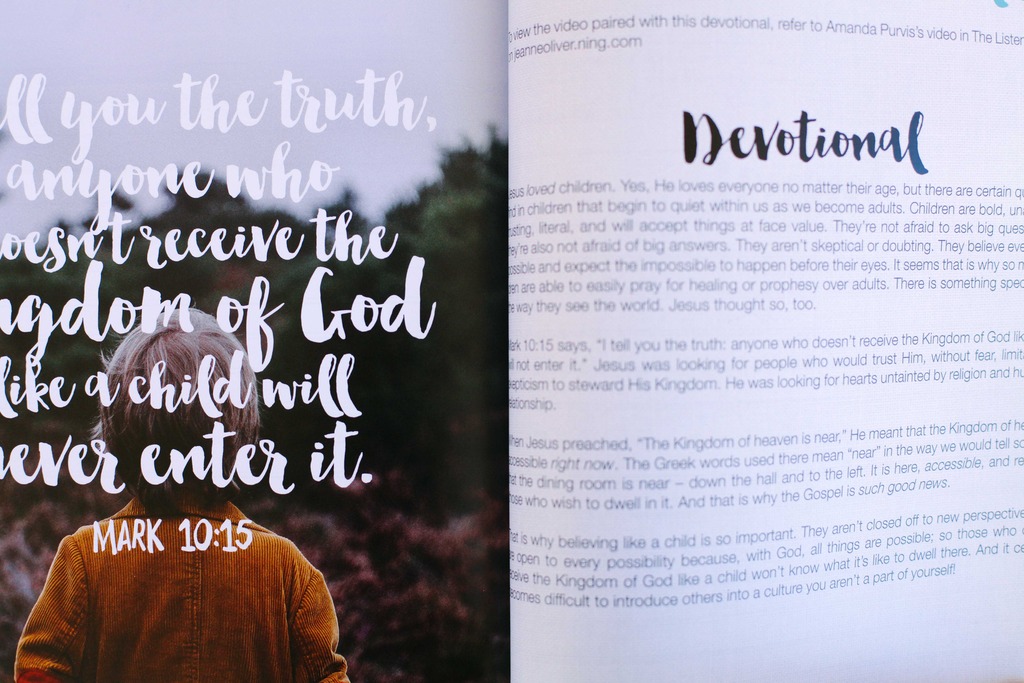 you the truth,
anyone who
receive the
of God
like a child will
never enter it.
MARK 10:15
view the video paired with this devotional, refer to Amanda Purvis's video in The
jeanneoliver.ning.com
Devotional
loved children. Yes, He loves everyone no matter their age, but there are certain
in children that begin to quiet within us as we become adults. Children are bold,
literal, and will accept things at face value. They're not afraid to ask big
also not afraid of big answers. They aren't skeptical or doubting. They believe
and expect the impossible to happen before their eyes. It seems that is why so
are able to easily pray for healing or prophesy over adults. There is something
way they see the world. Jesus thought so, too.
10:15 says, "I tell you the truth: anyone who doesn't receive the Kingdom of God
not enter it." Jesus was looking for people who would trust Him, without fear,
to steward His Kingdom. He was looking for hearts untainted by religion and
Jesus preached, "The Kingdom of heaven is near," He meant that the Kingdom of
right now. The Greek words used there mean "near" in the way we would tell
the dining room is near – down the hall and to the left. It is here, accessible, and
who wish to dwell in it. And that is why the Gospel is such good news.
is why believing like a child is so important. They aren't closed off to new
open to every possibility because, with God, all things are possible; so those who
the Kingdom of God like a child won't know what it's like to dwell there. And it
difficult to introduce others into a culture you aren't a part of yourself!